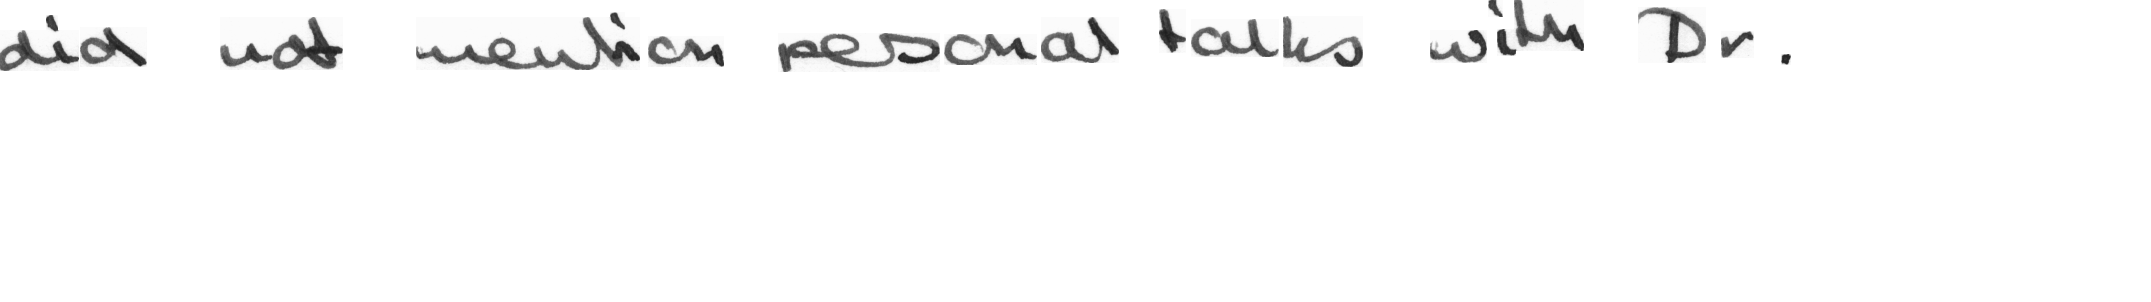 did not mention pesonal talks with Dr.